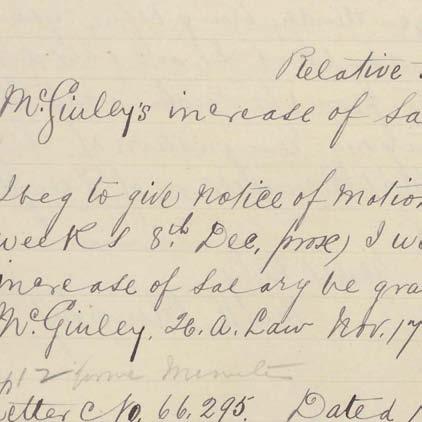 Relative
McGinley's increase of Sa
I beg to give notice of Motion
weeks 8th Dec, prox) I w
increase of Salary be gra
McGinley. H. A. Law Nov. 17
Letter No. 66,295. Dated 1